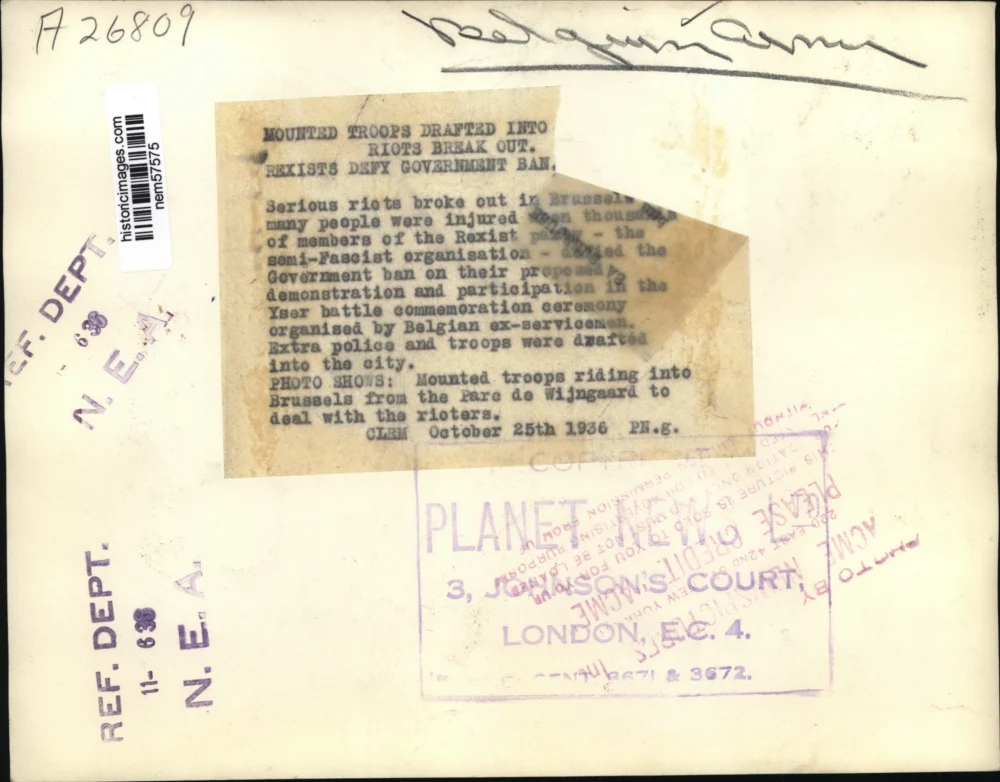 A 26809
Belgium Army
historicimages.com
nem57575
MOUNTED TROOPS DRAFTED INTO
RIOTS BREAK OUT.
REXISTS DEFY GOVERNMENT BAN.
Serious riots broke out in Brussels
many people were injured when thousands
of members of the Rexist party - the
semi-Fascist organisation - defied the
Government ban on their proposed
demonstration and participation in the
Yser battle commemoration ceremony
organised by Belgian ex-servicemen.
Extra police and troops were drafted
into the city.
PHOTO SHOWS: Mounted troops riding into
Brussels from the Parc de Wijngaard to
deal with the rioters.
CLEM October 25th 1936 PN.g.
REF. DEPT.
6 36
N. E. A.
REF. DEPT.
11- 6 36
N. E. A.
PLANET NEWS L
3, JOHNSON'S COURT,
LONDON, E.C. 4.
3671 & 3672.
PHOTO BY
ACME
220 EAST 42ND S
NEW YORK
PLEASE CREDIT "ACME